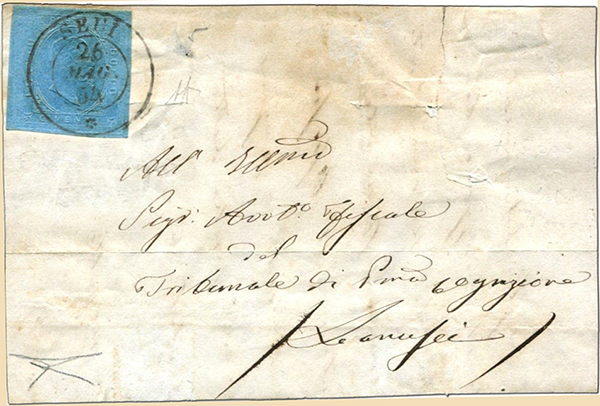 SEUI
26
MAG.
54
All' Illmo
Sigr. Avvto. Fiscale
del
Tribunale di Pma Cognizione
Lanusei